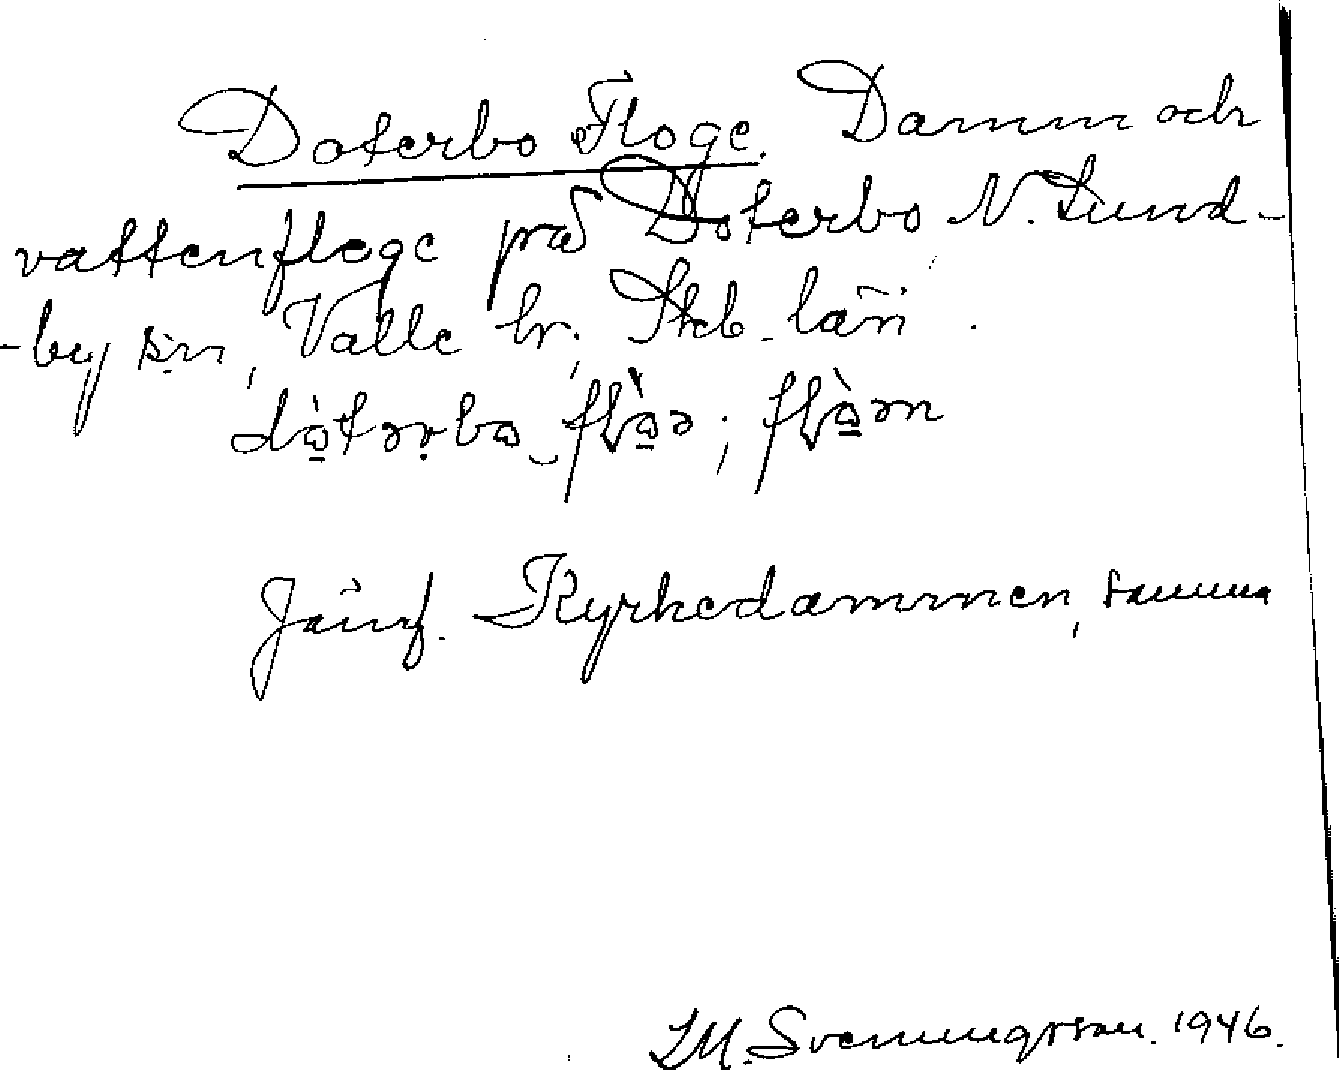 Doterbo Floge. Damm och
vattenfloge på Doterbo N. Lund-
-by sn, Valle hr, Skb. län.
dò̱tərbo flò̱ə ; flò̱ən
Jämf. Kyrkedammen, samma
LM. Svenungsson. 1946.